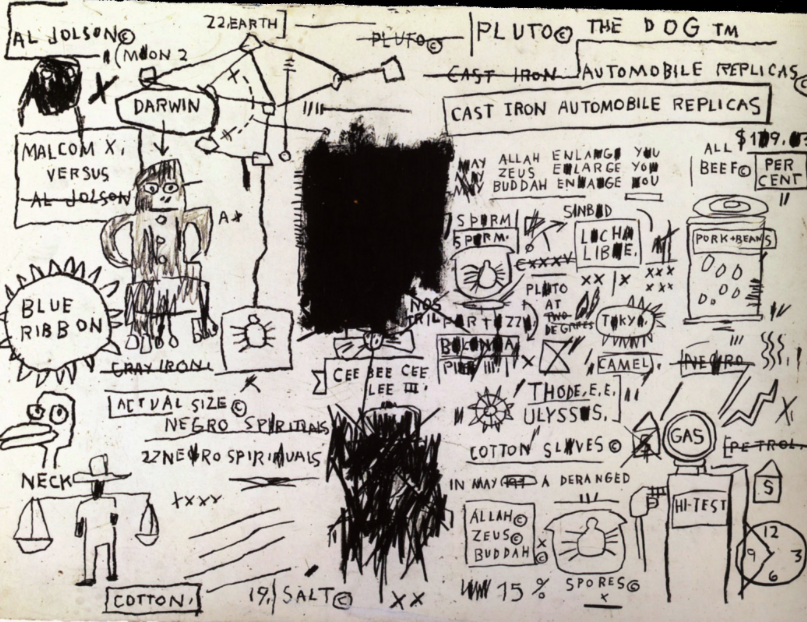 AL JOLSON©
(MOON 2
X
DARWIN
MALCOM X,
VERSUS
AL JOLSON
BLUE
RIBBON
GRAY IRON.
ACTUAL SIZE©
NEGRO SPIRITUALS
22 NEGRO SPIRITUALS
NECK
XXXY
COTTON.
22.EARTH]
PLUTO©
PLUTO© THE DOG TM
CAST IRON AUTOMOBILE REPLICAS©
CAST IRON AUTOMOBILE REPLICAS
MAY ALLAH ENLARGE YOU
MAY ZEUS ENLARGE YOU
MAY BUDDAH ENLARGE YOU
ALL
BEEF©
PER
CENT
PORK+BEANS
SPERM
SPERM.
SINBAD
LUCHA
LIBRE.
XX | X
XXX
XXX
PLUTO
AT
TWO
DEGREES
TOKYO.
CAMEL.
NEGRO
NOS
TRIL
CEE BEE CEE
LEE III.
ULYSSUS.
COTTON SLAVES©
IN MAY A DERANGED
ALLAH©
ZEUS©
BUDDAH
15 %
SPORES©
X
GAS
HI-TEST
PETROL.
S
S
12
9 3
6
19. SALT©
XX